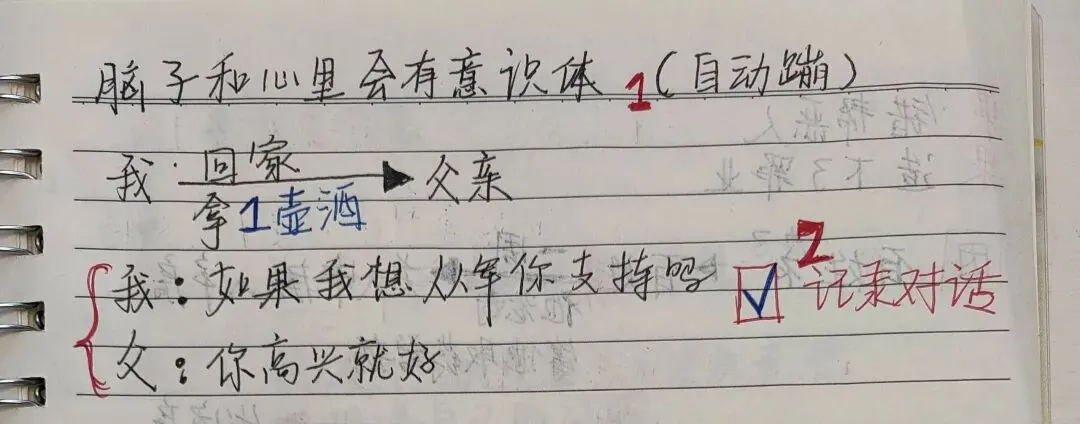 脑子和心里会有意识体 1(自动蹦)
我 回家 父亲
拿1壶酒
我：如果我想从军你支持吗 ☑ 2 记录对话
父：你高兴就好